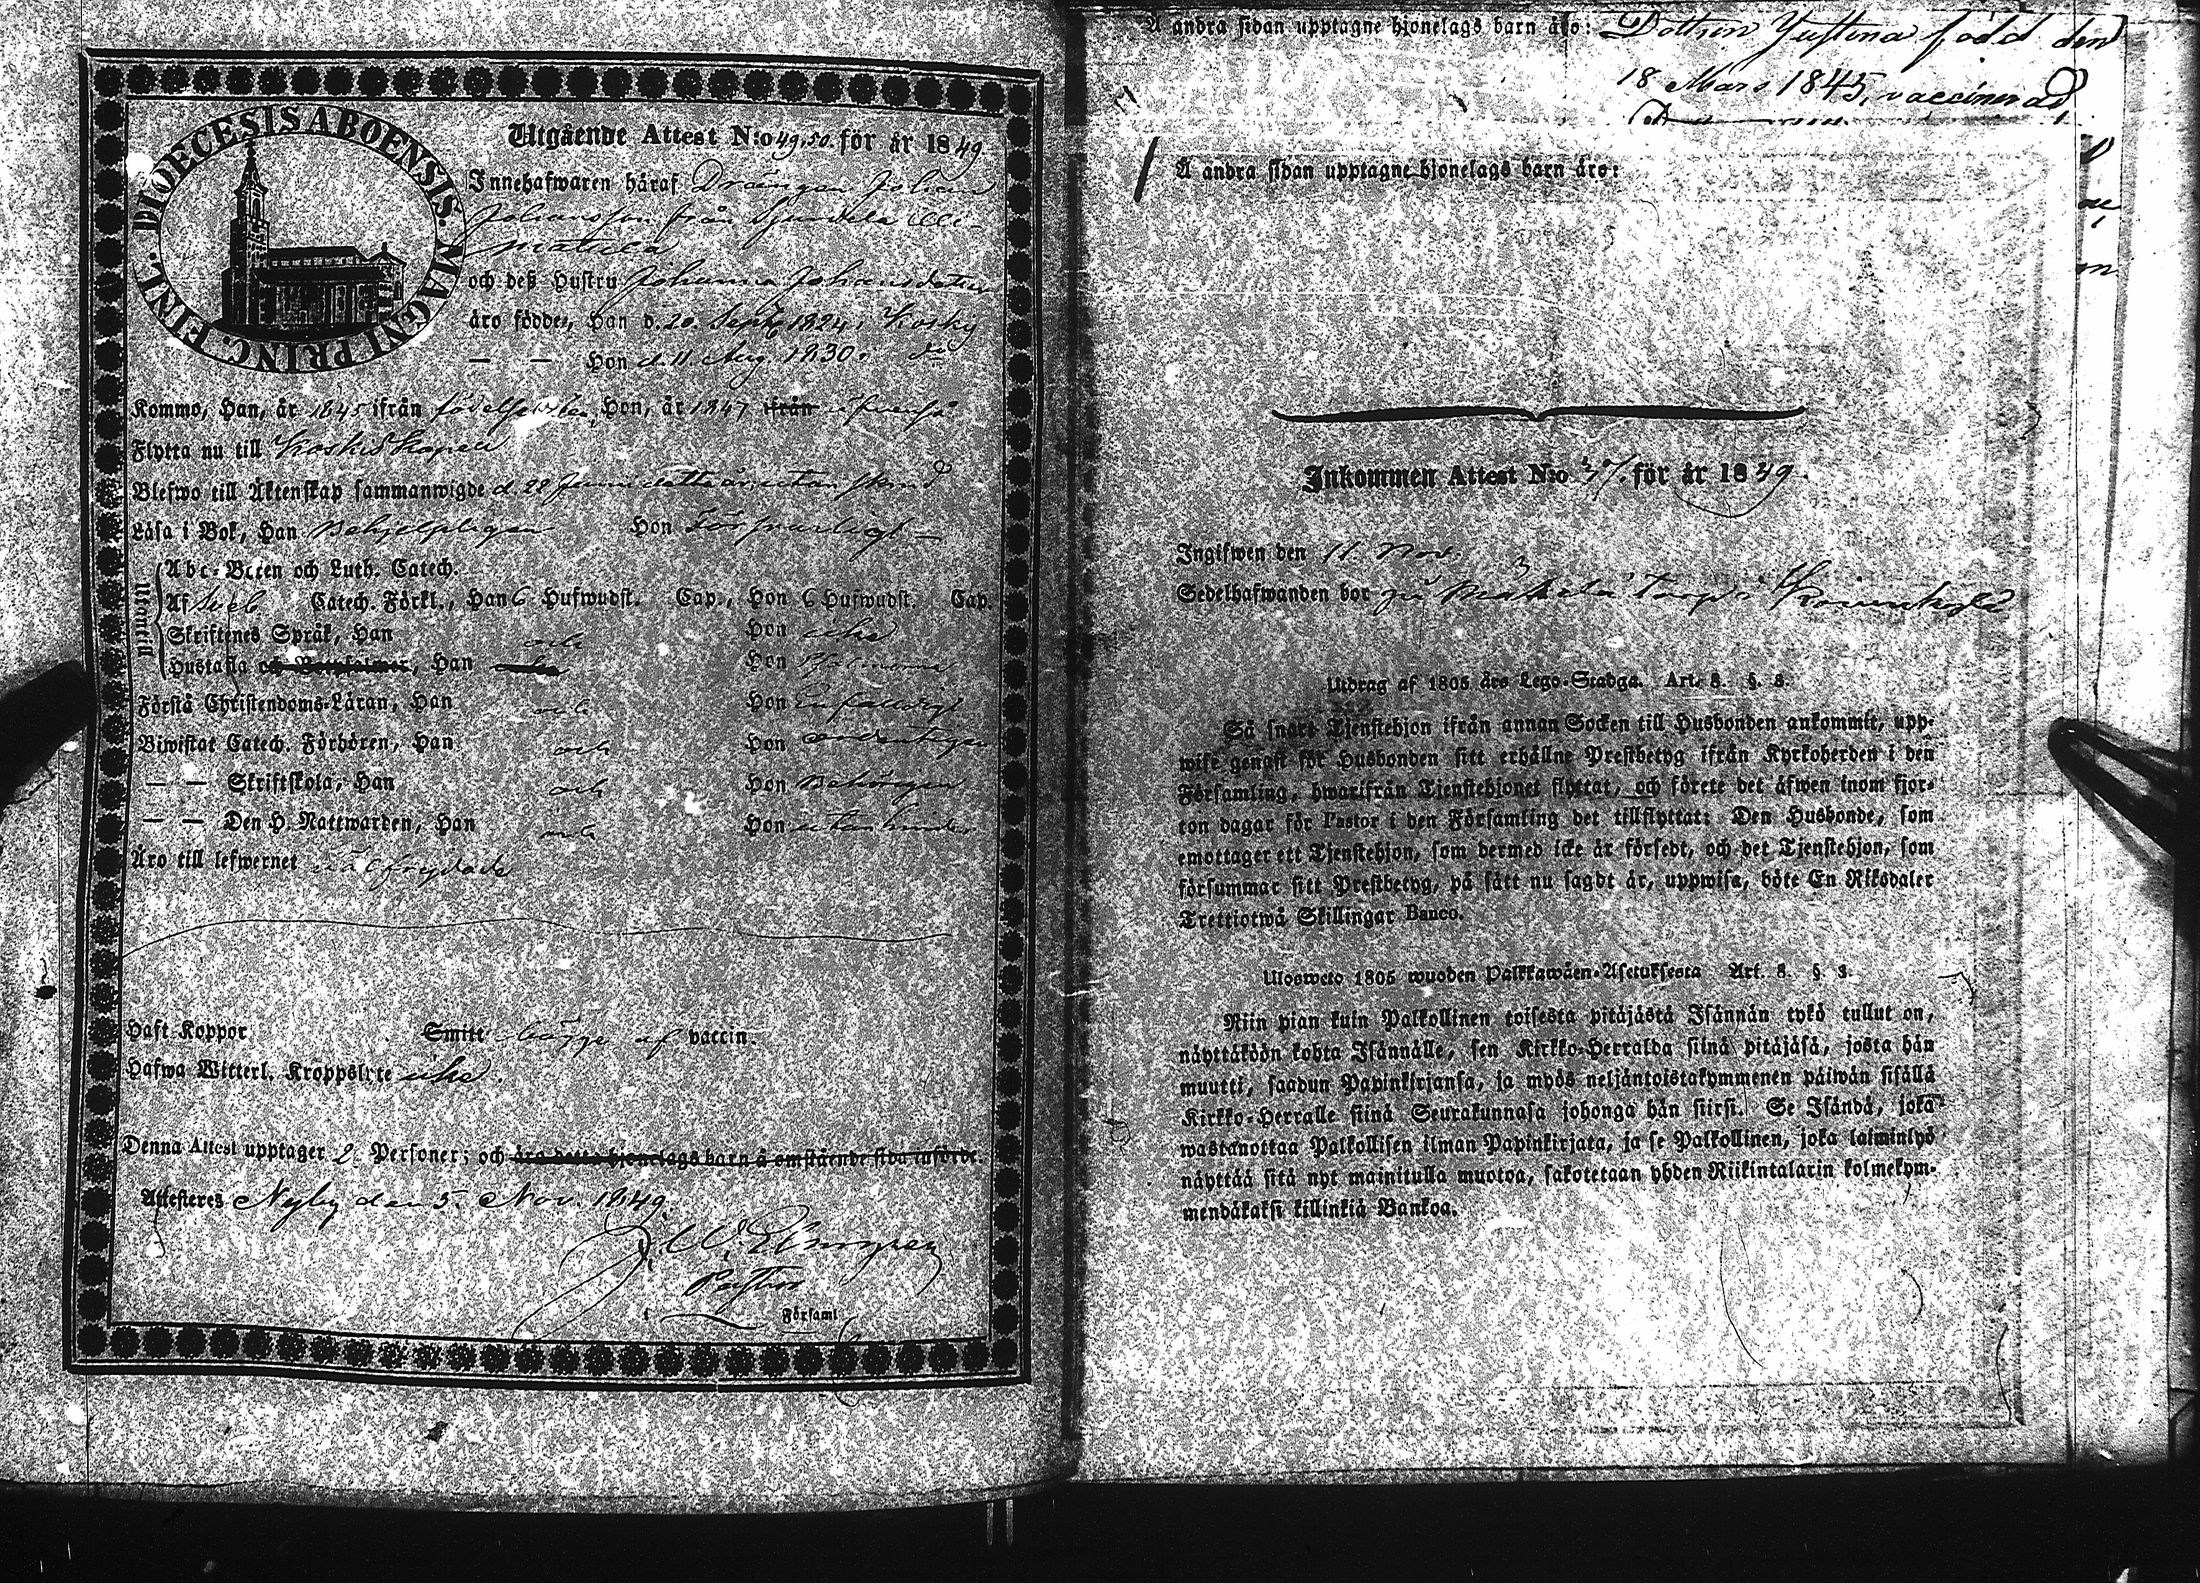 DIOECESIS ABOENSIS. MAGNI PRINC. FINL.
Utgående Attest N:o 49, 50. för år 1849.
Innehafwaren häraf Drängen Johan
Johansson från Sjundela
och deß Hustru Johanna Johansdotter
äro födde, Han d. 20. Sept. 1824 i Koskis
— — Hon d. 11. Aug. 1830. do
Kommo, Han, år 1845 ifrån födelseorten, Hon, år 1847 ifrån
Flytta nu till Koskis Kapell
Blefwo till Äktenskap sammanwigde d. 22 Juni detta år utan
Läsa i Bok, Han Behjelpligen Hon Försvarligt —
Utom
Abc-Boken och Luth. Catech.
Af Sveb. Catech. Förkl., Han 6 Hufwudst. Cap., Hon 6 Hufwudst. Cap.
Skriftenes Språk, Han och Hon icke
Hustafla och, Han Hon Psalmerna
Förstå Christendoms-Läran, Han och Hon Enfaldigt
Biwistat Catech. Förhören, Han och Hon ordentligen
— — Skriftskola, Han och Hon Behörigen
— — Den H. Nattwarden, Han och Hon utan hinder
Äro till lefwernet välfrejdade
Haft Koppor Smitt bägge af vaccin.
Hafwa Witterl. Kroppslyte icke.
Denna Attest upptager 2 Personer; och äro detta hjonelags barn å omstående sida införde.
Attesteres Nyby den 5. Nov. 1849.
Pastor
i Församl.
Å andra sidan upptagne hjonelags barn äro: Dottren Justina född den
18 Mars 1845, vaccinerad
Å andra sidan upptagne hjonelags barn äro:
Inkommen Attest N:o 47. för år 1849.
Ingifwen den 11. Nov.
Sedelhafwanden bor på torp i
Utdrag af 1805 års Lego-Stadga. Art. 8. §. 3.
Så snart Tjenstehjon ifrån annan Socken till Husbonden ankommit, upp-
wise genast för Husbonden sitt erhållne Prestbetyg ifrån Kyrkoherden i den
Församling, hwarifrån Tjenstehjonet flyttat, och förete det äfwen inom fjor-
ton dagar för Pastor i den Församling det tillflyttat: Den Husbonde, som
emottager ett Tjenstehjon, som dermed icke är försedt, och det Tjenstehjon, som
försummar sitt Prestbetyg, på sätt nu sagdt är, uppwisa, böte En Riksdaler
Trettiotwå Skillingar Banco.
Ulosweto 1805 wuoden Palkkawäen-Asetuksesta Art. 8. §. 3.
Niin pian kuin Palkollinen toisesta pitäjästä Isännän tykö tullut on,
näyttäköön kohta Isännälle, sen Kirkko-Herralda siinä pitäjäsä, josta hän
muutti, saadun Papinkirjansa, ja myös neljäntoistakymmenen päiwän sisällä
Kirkko-Herralle siinä Seurakunnasa johonga hän siirsi. Se Isändä, joka
wastanottaa Palkollisen ilman Papinkirjata, ja se Palkollinen, joka laiminlyö
näyttää sitä nyt mainitulla muotoa, sakotetaan yhden Riikintalarin kolmekym-
mendäkaksi killinkiä Bankoa.